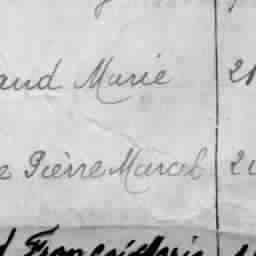 aud Marie 21
e Pierre Marcel 2
François Marie